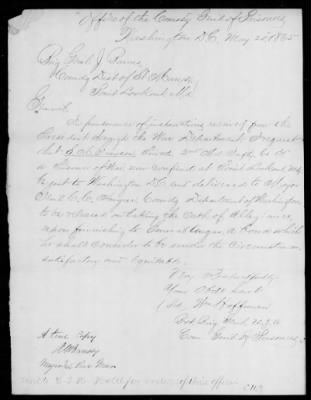 "Office of the Comdy Genl of Prisoners
Washington D.C. May 25 1865
Brig Genl J.
Comdg Dist of St Marys
Point Lookout Md
General
In pursuance of instructions received from the
President through the War Department, I request
that Privt 2nd
a Prisoner of War now confined at Point Lookout Md
be sent to Washington D.C. and delivered to Major
Genl C.C. Augur Comdg Department of Washington
to be released on taking the oath of Allegiance
upon furnishing to General Augur, a Bond which
he shall consider to be under the circumstances
satisfactory and equitable.
Very Respectfully
Your Obdt Servt
(Sd) Wm Hoffman
Bvt Brig Genl U.S.A.
Com Genl of Prisoners
A true Copy